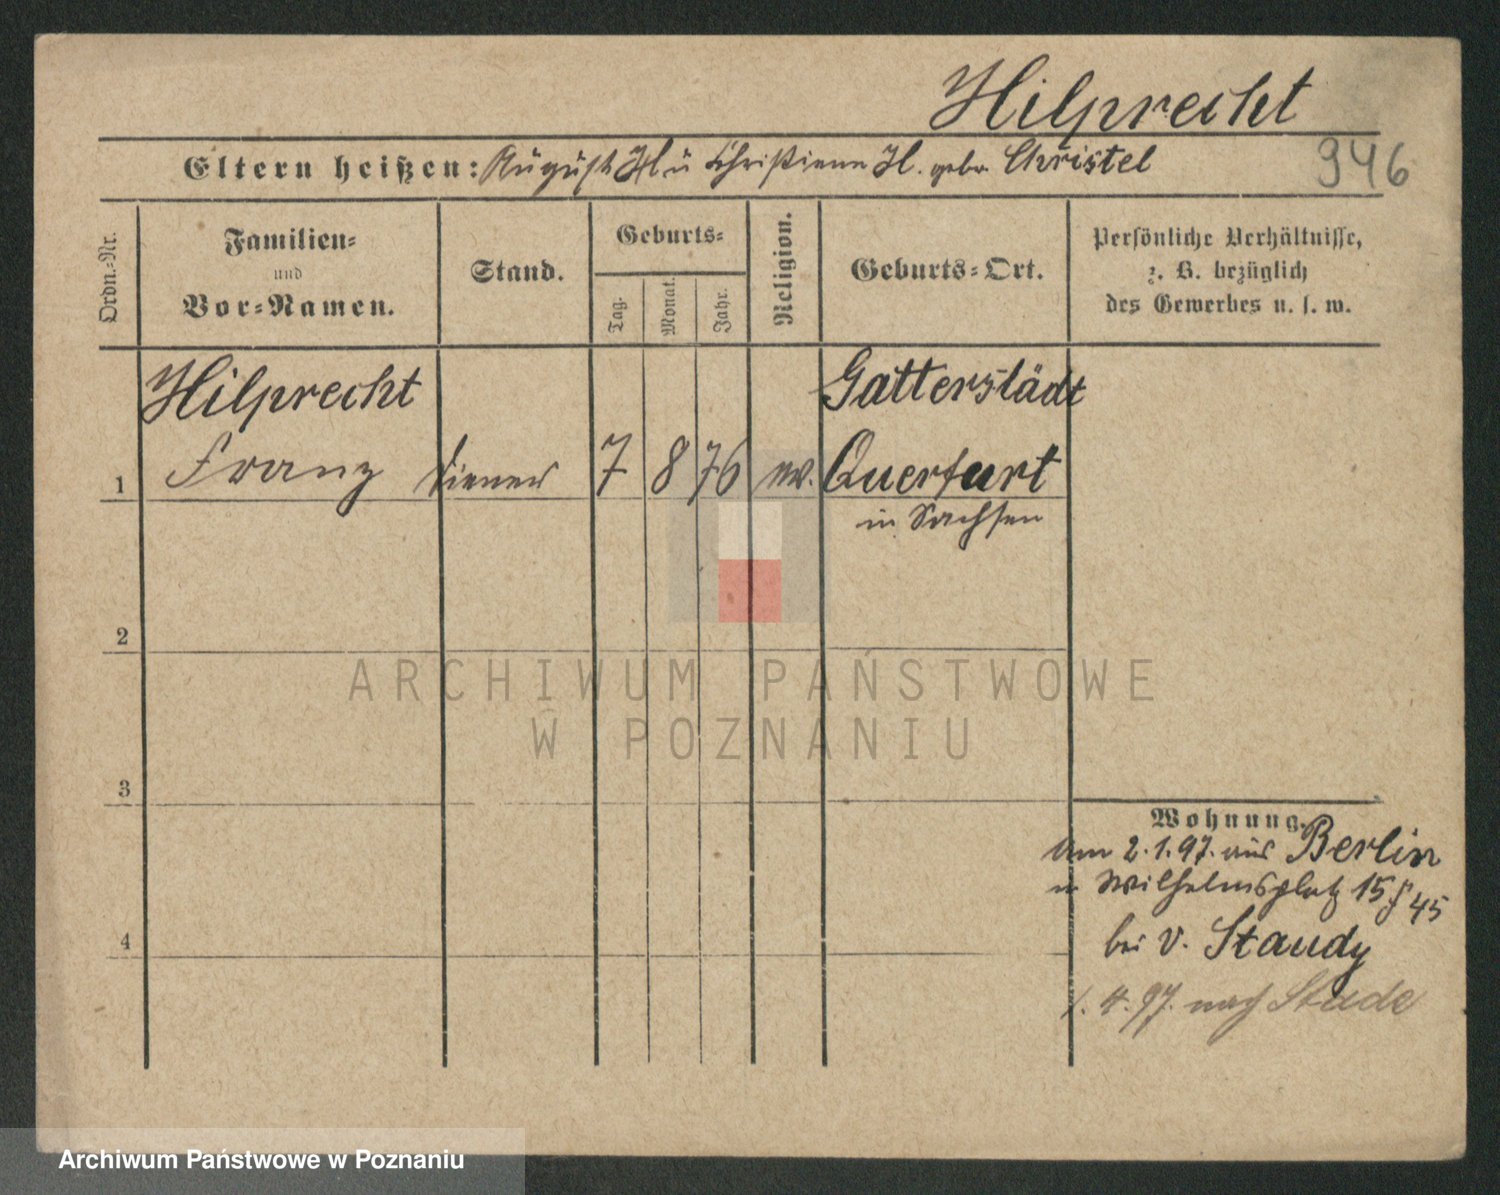 Hilprecht
Eltern heißen: August H. u Christiane H. gebr. Christel
946
Ordn.-Nr.
Familien-
und
Vor-Namen.
Stand.
Geburts-
Tag.
Monat.
Jahr.
Religion.
Geburts-Ort.
Persönliche Verhältnisse,
z. B. bezüglich
des Gewerbes u. s. w.
Hilprecht
Gatterstädt
1 Franz Diener 7 8 76 ev. Querfurt
in Sachsen
2
ARCHIWUM PAŃSTWOWE
W POZNANIU
3
Wohnung.
am 2.1.97. aus Berlin
n Wilhelmsplatz 15 45
bei v. Staudy
4
1. 4. 97. nach Stade
Archiwum Państwowe w Poznaniu